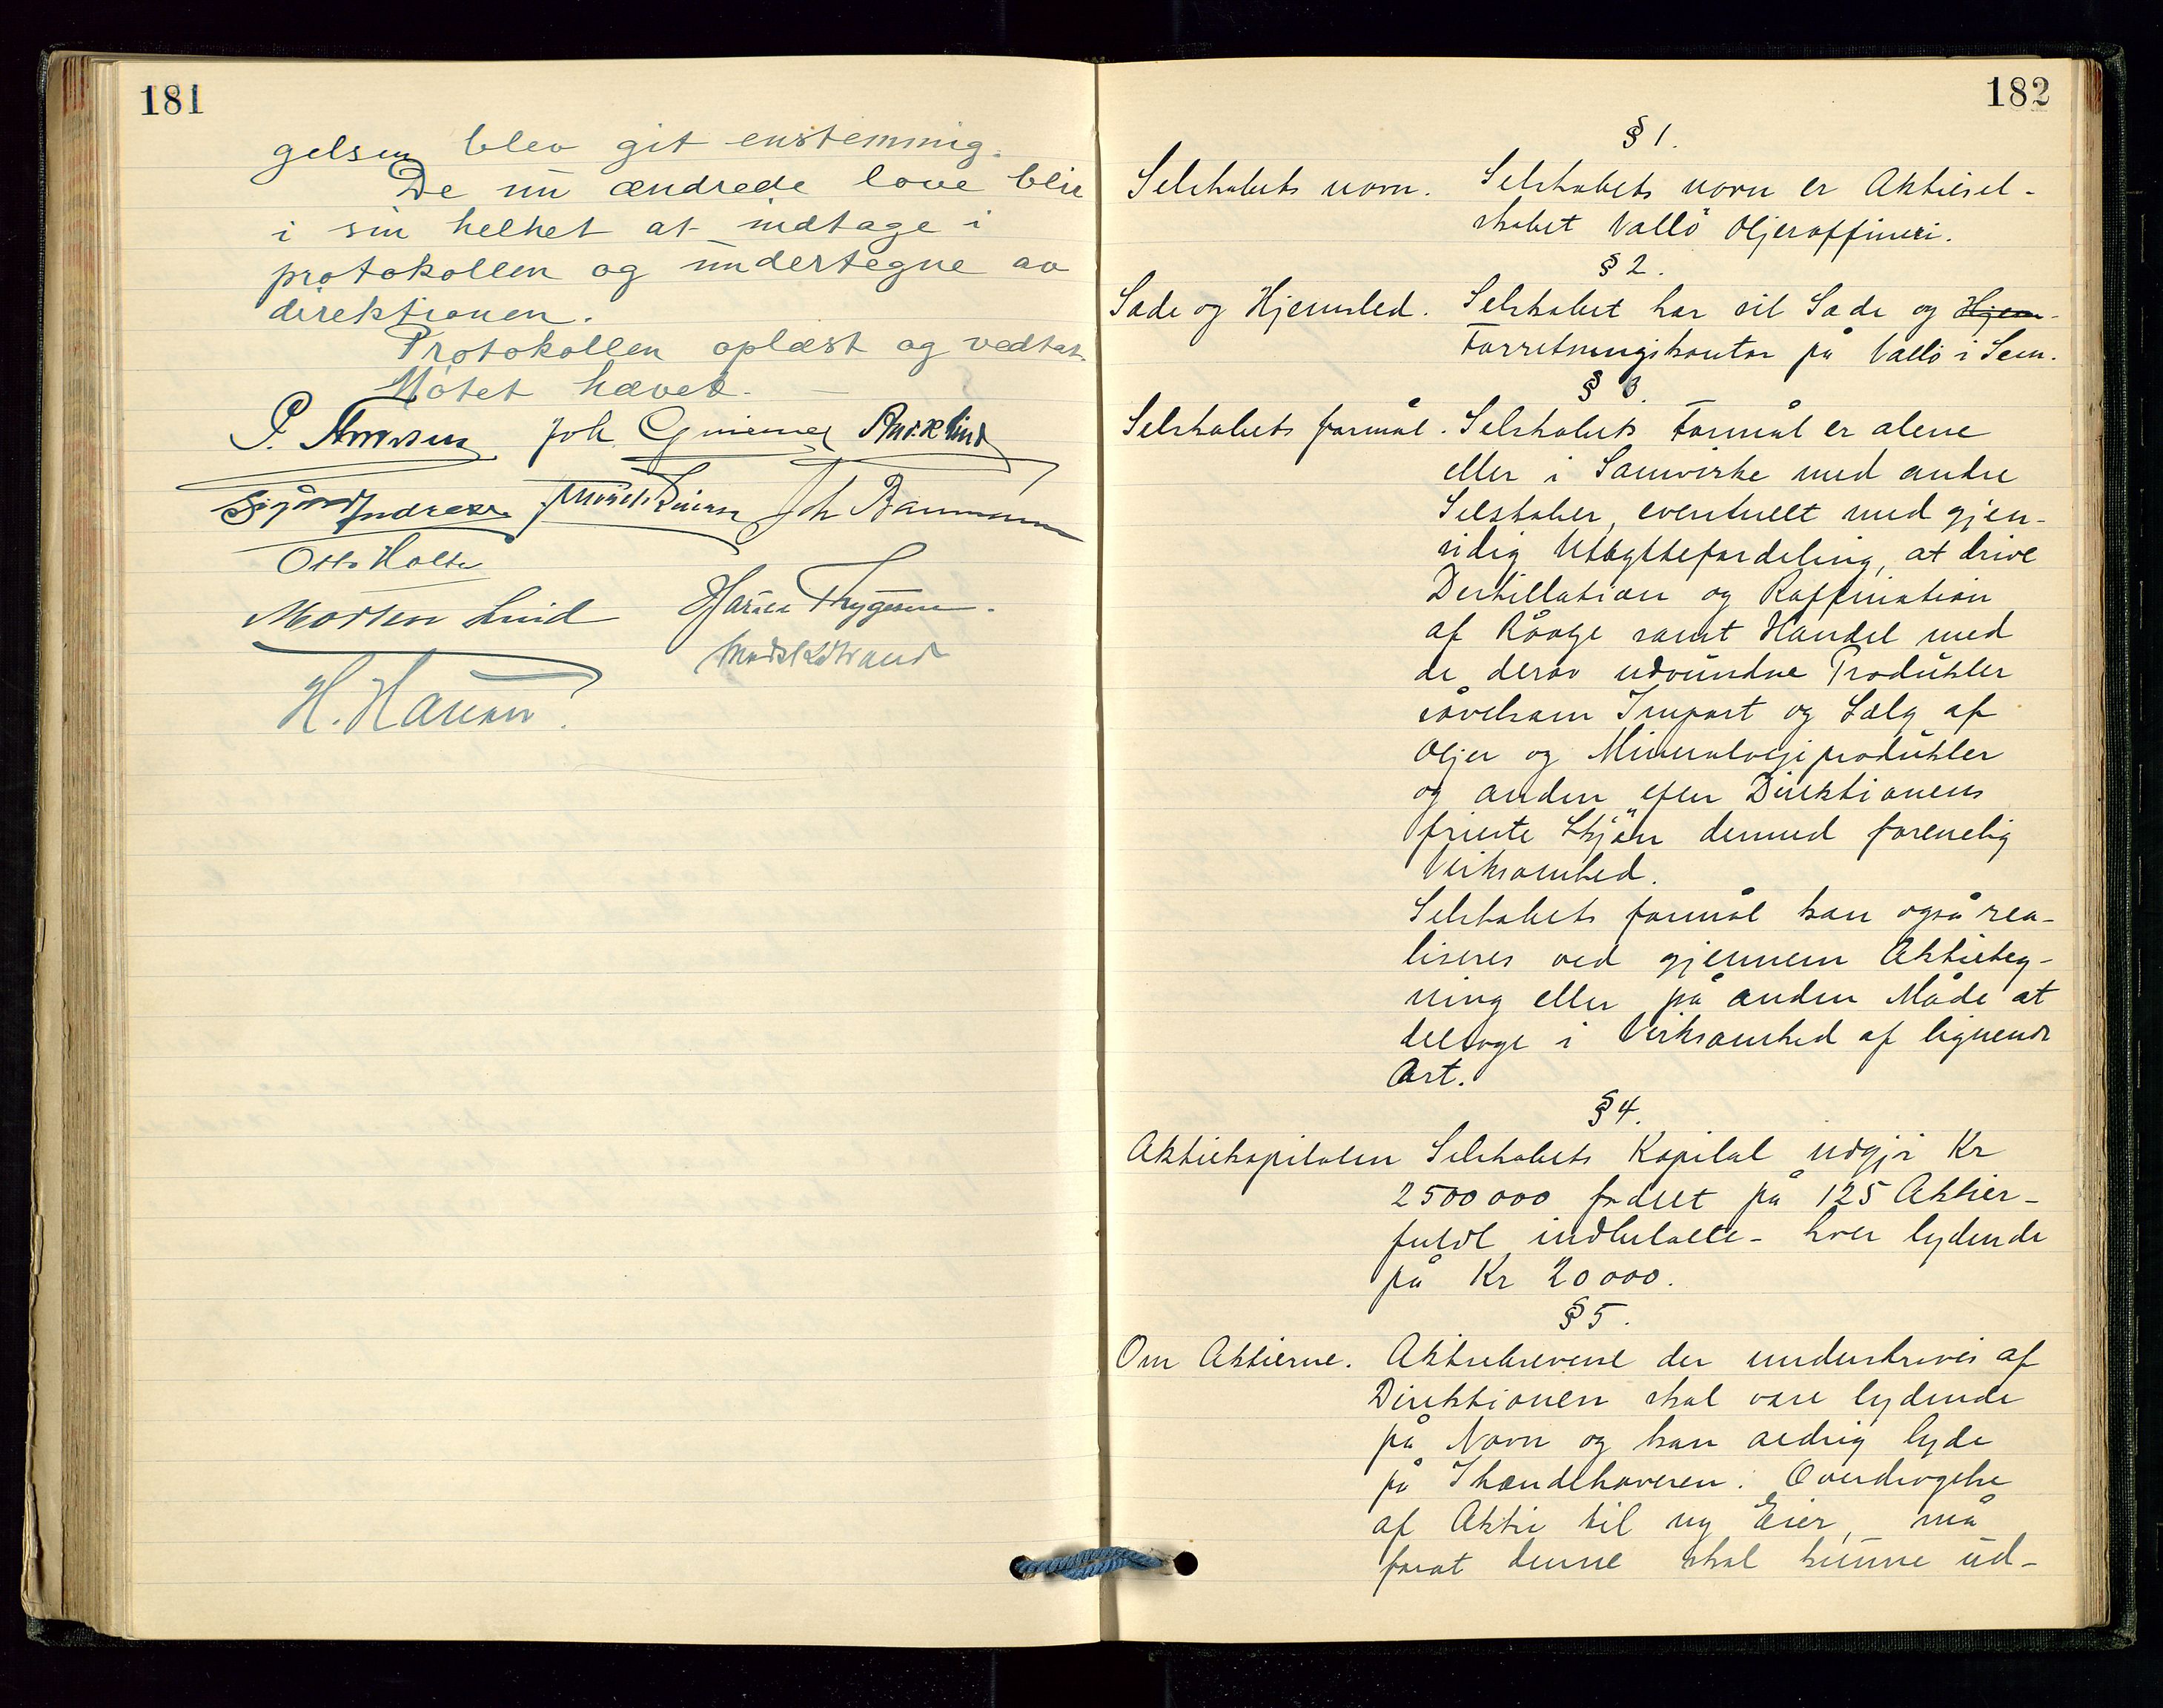 181
gelsen blev git enstemmig.
De nu ændrede love blir
i sin helhet at indtage i
protokollen og undertegne av
direktionen.
Protokollen oplæst og vedtat.
Møtet hævet.
Joh
Sigurd
Joh
Otto Holte
Morten Lind Thygesen
H. Hansen
182
§ 1.
Selskabets navn. Selskabets navn er Aktiesel-
skabet Vallö Oljeraffineri.
§ 2.
Sæde og Hjemsted. Selskabet har sit Sæde og Hjem-
Forretningskontor på Vallö i Sem.
§ 3.
Selskabets formål. Selskabets Formål er alene
eller i Samvirke med andre
Selskaber, eventuelt med gjen-
sidig Utbyttefordeling, at drive
Destillation og Raffination
af Råolje samt Handel med
de derav udvundne Produkter
såvelsom Import og Salg af
Oljer og Mineraloljeprodukter
og anden efter Direktionens
frieste Skjön dermed forenelig
Virksomhed.
Selskabets formål kan også rea-
liseres ved gjennem Aktieteg-
ning eller på anden Måde at
deltage i Virksomhed af lignende
Art.
§ 4.
Aktiekapitalen Selskabets Kapital udgjör Kr
2500000 fordelt på 125 Aktier-
fuldt indbetalte- hver lydende
på Kr 20000.
§ 5.
Om Aktierne. Aktiebrevene der underskrives af
Direktionen skal være lydende
på Navn og kan aldrig lyde
på Ihændehaveren. Overdragelse
af Aktie til ny Eier, må
forat denne skal kunne ud-